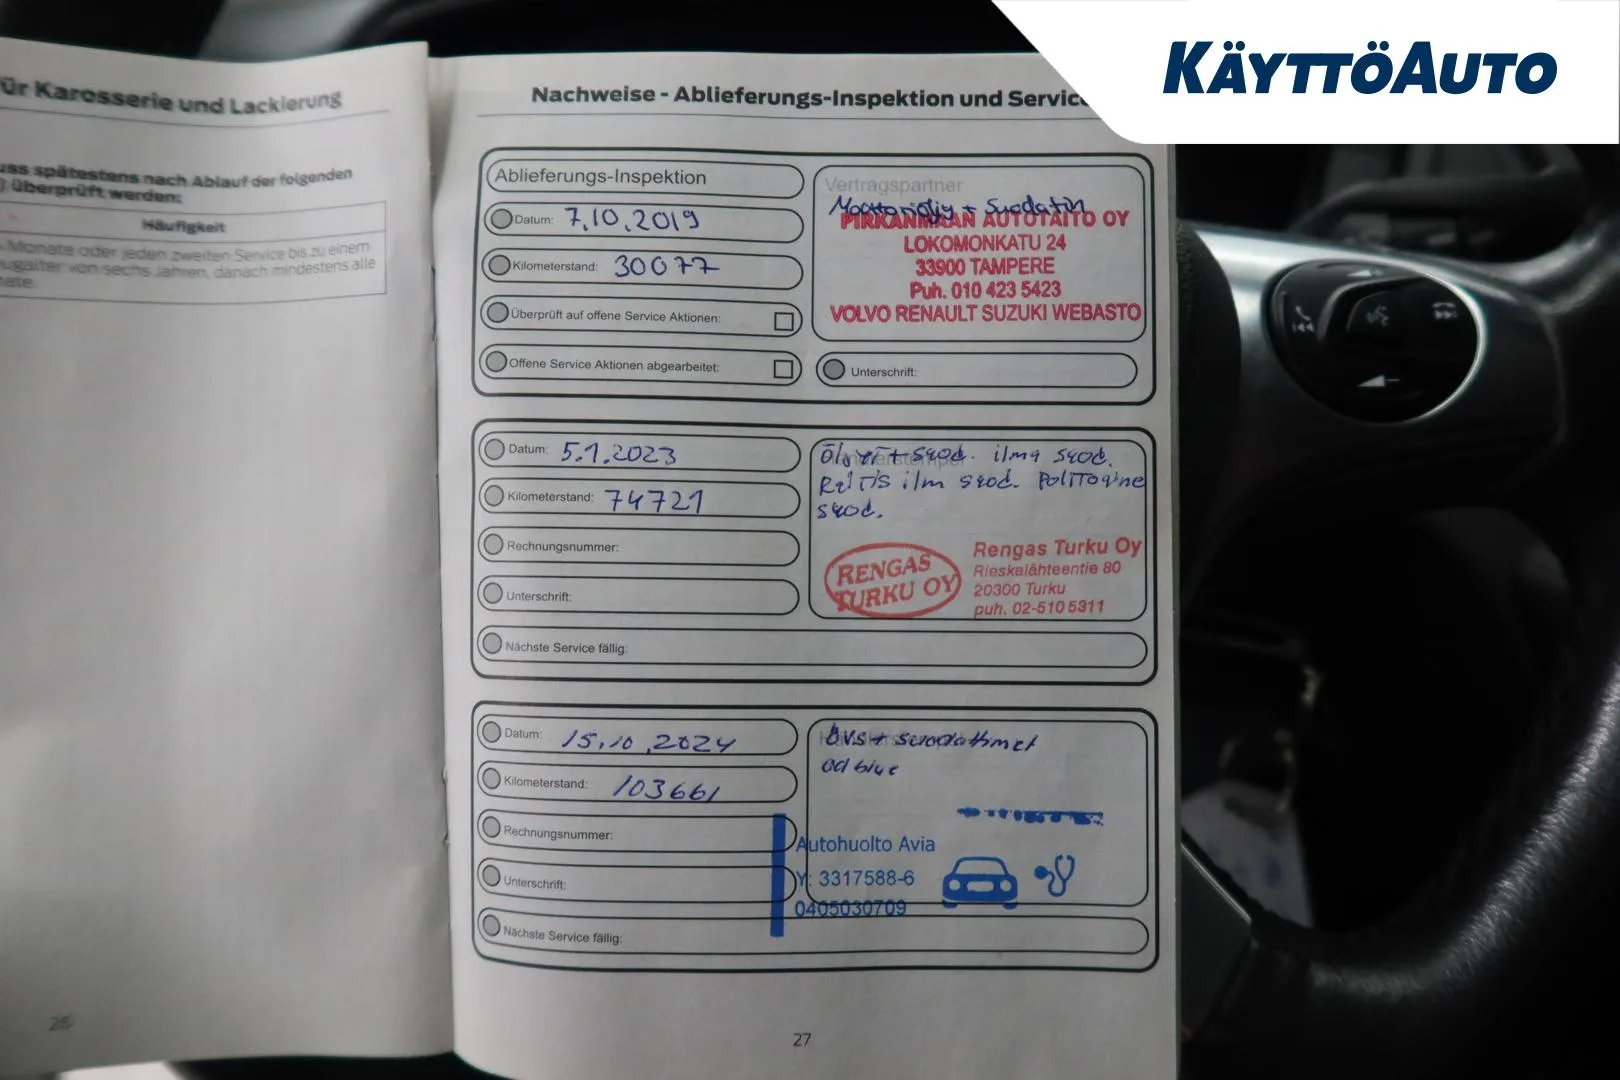 KÄYTTÖAUTO
ür Karosserie und Lackierung
uss spätestens nach Ablauf der folgenden
) überprüft werden:
Häufigkeit
Monate oder jeden zweiten Service bis zu einem
ugalter von sechs Jahren, danach mindestens alle
nate.
26
Nachweise - Ablieferungs-Inspektion und Service
Ablieferungs-Inspektion
Datum: 7.10.2019
Kilometerstand: 30077
Überprüft auf offene Service Aktionen:
Offene Service Aktionen abgearbeitet:
Vertragspartner
Moottoriöljy + Suodatin
PIRKANMAAN AUTOTAITO OY
LOKOMONKATU 24
33900 TAMPERE
Puh. 010 423 5423
VOLVO RENAULT SUZUKI WEBASTO
Unterschrift:
Datum: 5.1.2023
Kilometerstand: 74721
Rechnungsnummer:
Unterschrift:
Nächste Service fällig:
+ suod. ilma suod.
ilm suod.
suod.
RENGAS
TURKU OY
Rengas Turku Oy
Rieskalähteentie 80
20300 Turku
puh. 02-510 5311
Datum: 15.10.2024
Kilometerstand: 103661
Rechnungsnummer:
Unterschrift:
Nächste Service fällig:
+ suodattimet
ad blue
Autohuolto Avia
Y: 3317588-6
0405030709
27